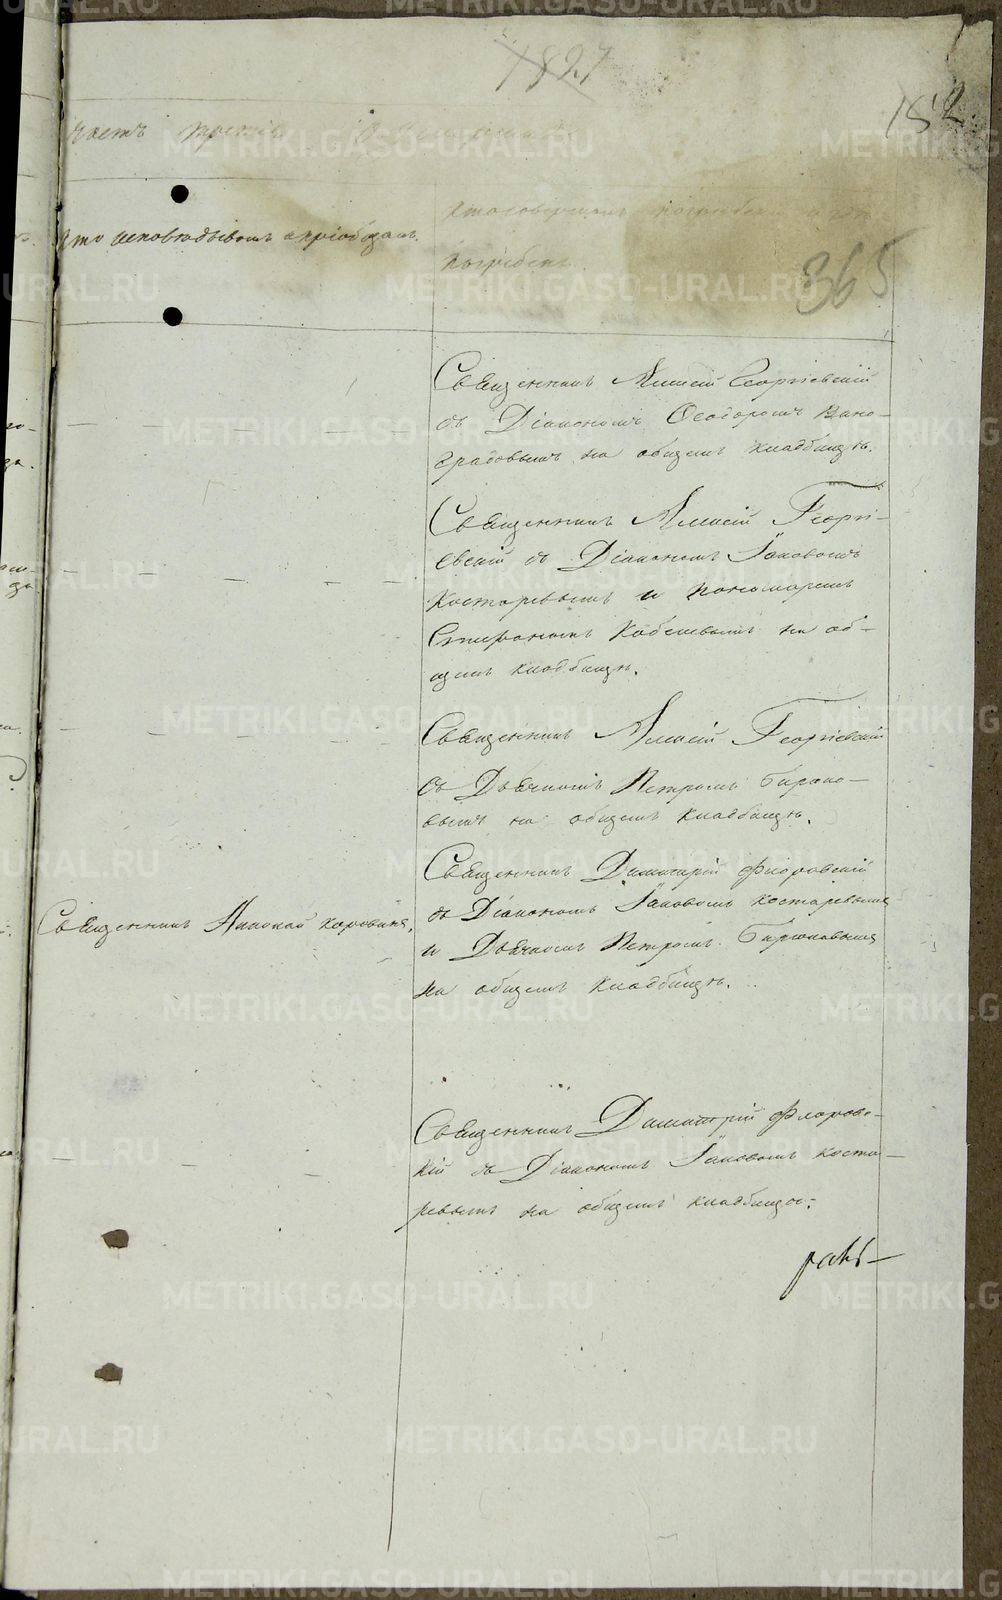 182
часть третiя
Кто исповѣдывалъ и прiобщалъ.
Кто совершалъ погребенiе и гдѣ
погребены
365
Священникъ Алексiй Георгiевскiй
съ Дiакономъ Ѳеодоромъ Вино-
градовымъ на общемъ кладбищѣ.
Священникъ Алексiй Георгi-
евскiй съ Дiакономъ Iаковомъ
Костаревымъ и пономаремъ
Стефаномъ на об-
щемъ кладбищѣ.
Священникъ Алексiй Георгiевскiй
съ Дьячкомъ Петромъ Бирюко-
вымъ на общемъ кладбищѣ.
Священникъ Димитрiй Флоровскiй
съ Дiакономъ Iаковомъ Костаревымъ
и Дьячкомъ Петромъ Бирюковымъ
на общемъ кладбищѣ.
Священникъ Николай Коровинъ.
Священникъ Димитрiй Флоровс-
кiй съ Дiакономъ Iаковомъ Коста-
ревымъ на общемъ кладбищѣ.
METRIKI.GASO-URAL.RU